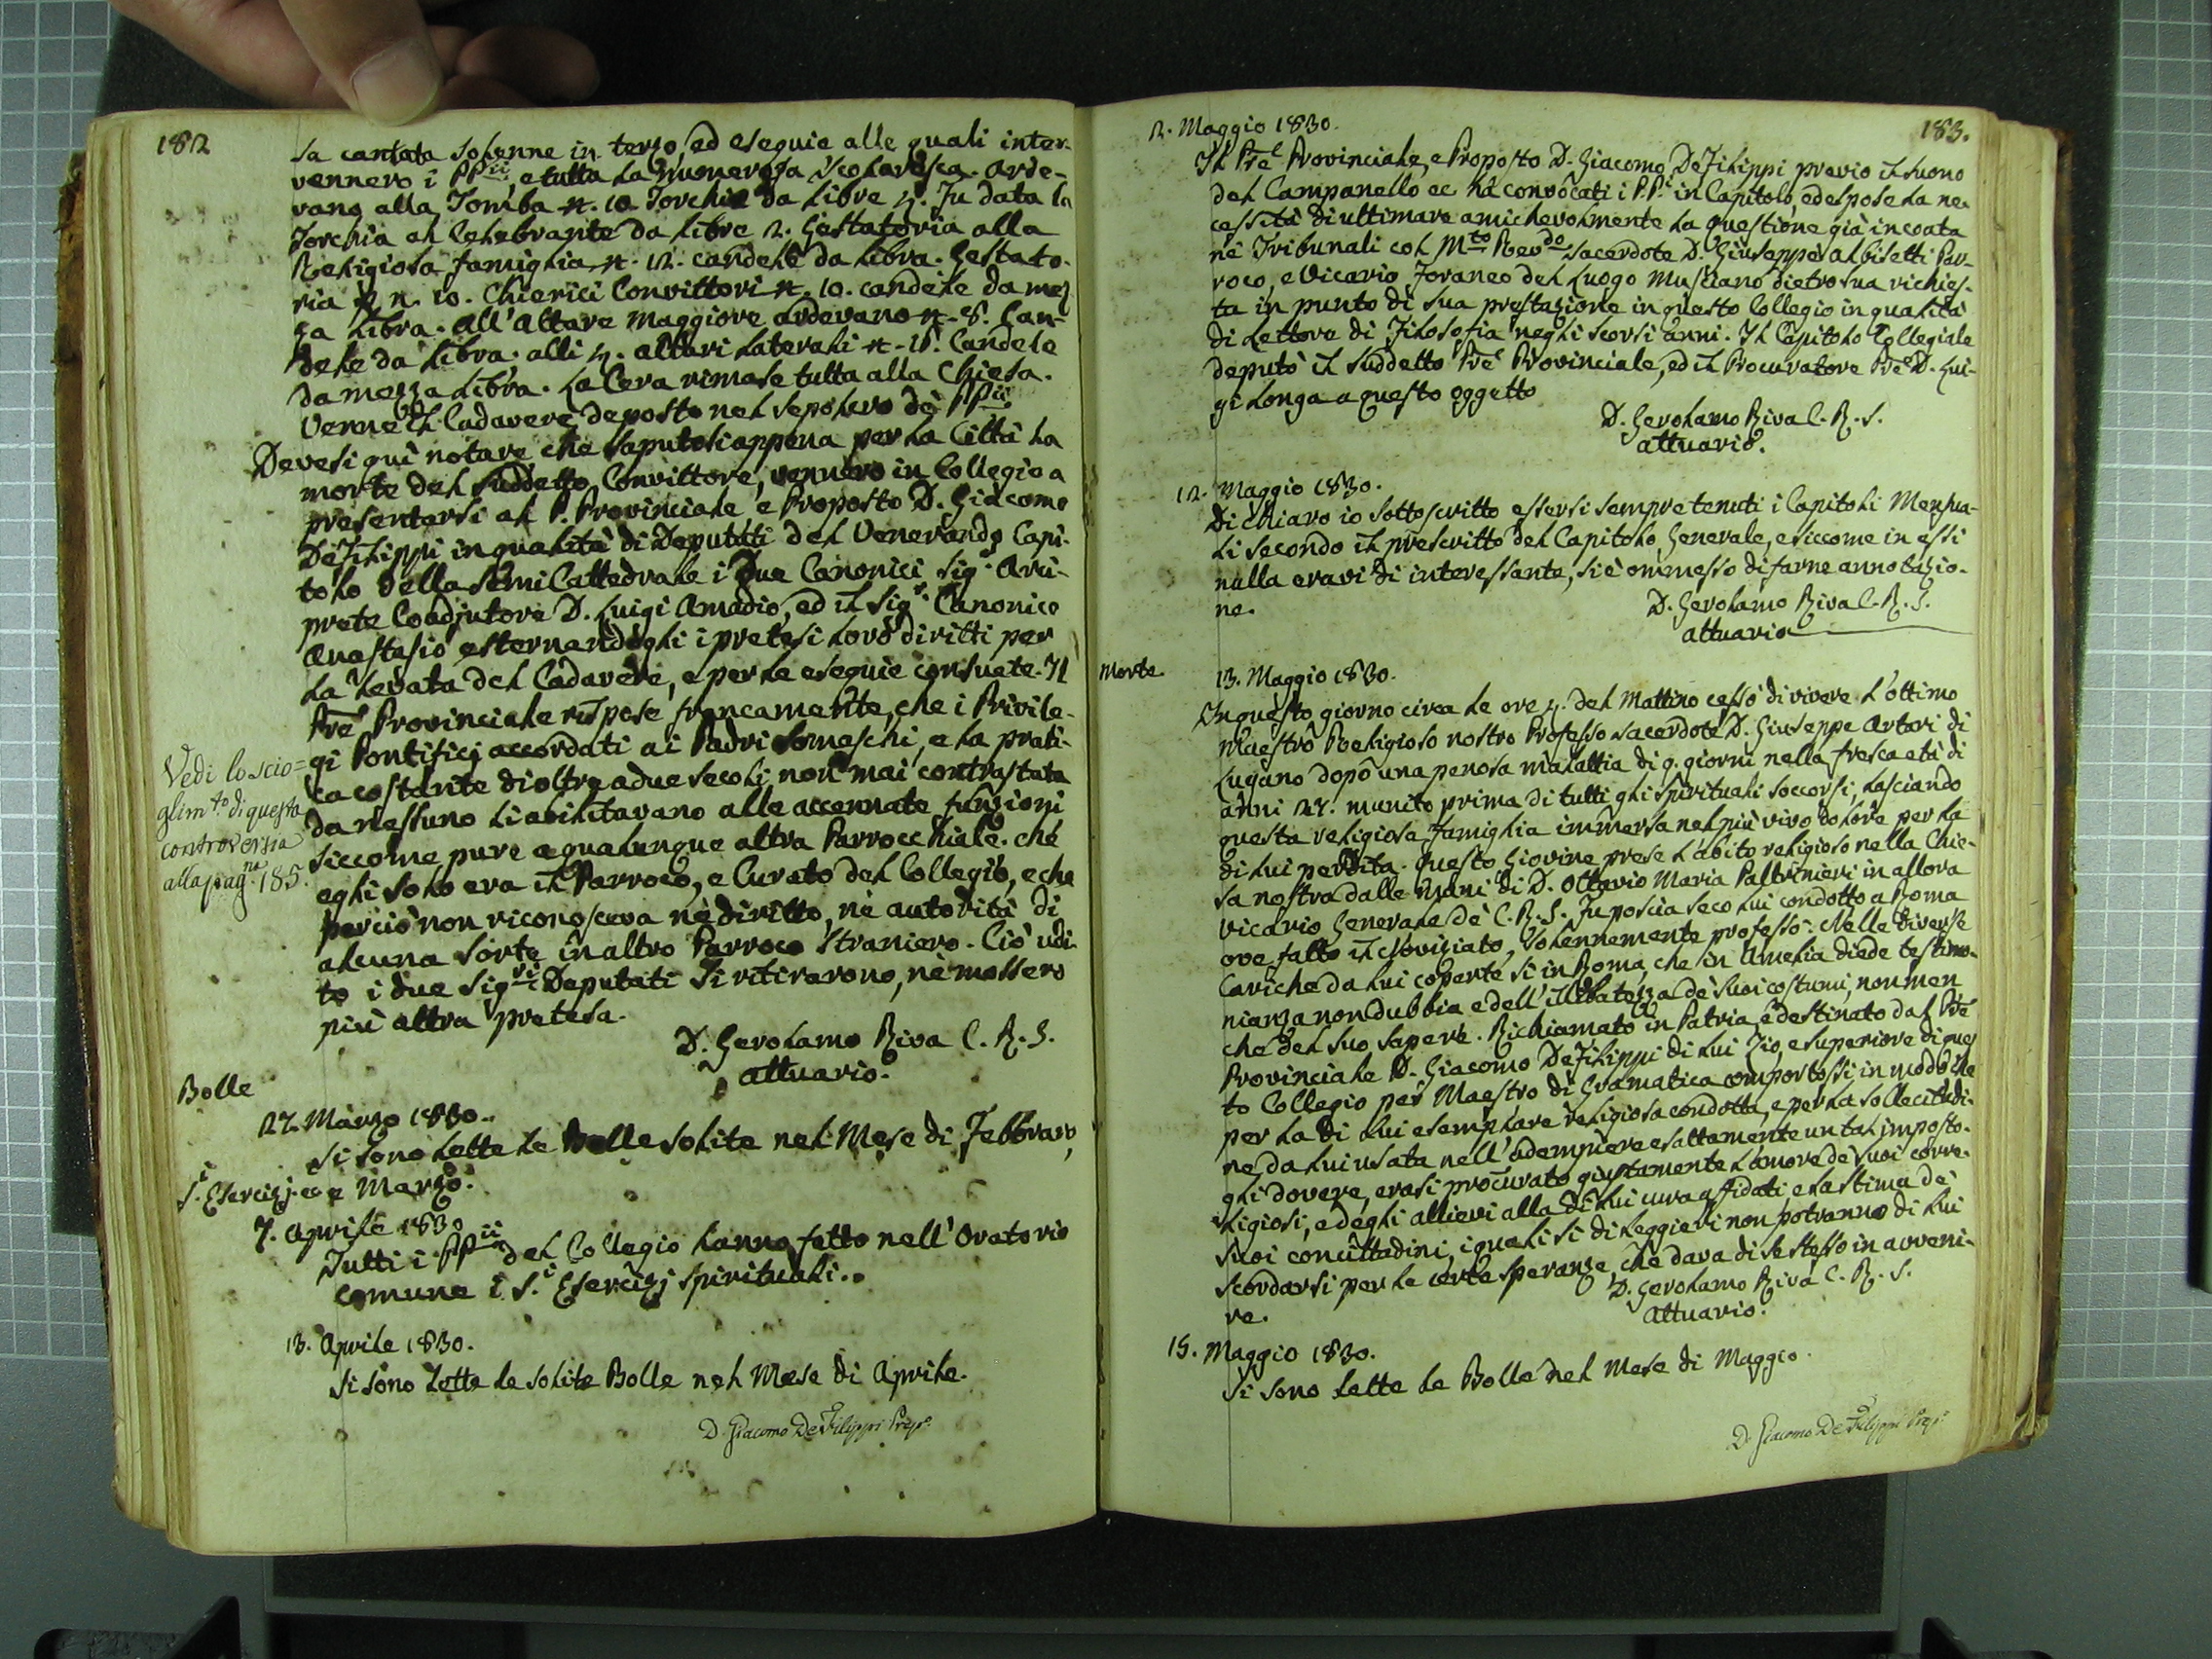 182
sa cantata solenne in terzo, ed esequie alle quali inter-
vennero i PPii, e tutta la numerosa Scolaresca. Arde-
vano alla Tomba n. 10 Torchie da libre 4. Fu data la
Torchia al Celebrante da libre 2. Gestatoria alla
Religiosa famiglia n. 12. candele da libra. Gestato-
ria n. 10. Chierici Convittori n. 10. candele da mez-
za libra. All'Altare Maggiore ardevano n. 8. Can-
dele da libra. alli 4. altari laterali n. 18. Candele
da mezza libra. La Cera rimase tutta alla Chiesa.
Venne il Cadavere deposto nel sepolcro de' PPii
Devesi quì notare che saputosi appena per la Città la
morte del suddetto Convittore, vennero in Collegio a
presentarsi al P. Provinciale e Proposto D. Giacomo
DeFilippi in qualità di Deputati del Venerando Capi-
tolo della SemiCattedrale i Due Canonici Sig.r Arci-
prete Coadjutore D. Luigi Amadio, ed il Sig.r Canonico
Anastasio esternandogli i pretesi loro diritti per
la levata del Cadavere, e per le esequie consuete. Il
Pre Provinciale rispose francamente, che i Privile-
gi Pontificj accordati ai Padri Somaschi, e la prati-
ca costante di oltre a due secoli non mai contrastata
da nessuno li abilitavano alle accennate funzioni
siccome pure a qualunque altra Parrocchiale. che
egli solo era il Parroco, e Curato del Collegio, e che
perciò non riconosceva nè diritto, nè autorità di
alcuna sorte in altro Parroco straniero. Ciò udi-
to i due Sig.ri Deputati si ritirarono, nè mossero
più altra pretesa.
D. Gerolamo Riva C. R. S.
attuario.
Vedi lo scio=
glim.to di questa
controversia
alla pag.na 185.
Bolle
27. Marzo 1830.
Si sono lette le Bolle solite nel Mese di Febbraro,
e Marzo.
S.i Esercizj. ec
7. Aprile 1830
Tutti i PPii del Collegio hanno fatto nell'Oratorio
comune i S.i Esercizj spirituali.
13. Aprile 1830.
Si sono lette le solite Bolle nel Mese di Aprile.
D. Giacomo DeFilippi Prep.o
183.
2. Maggio 1830.
Il Pre Provinciale, e Proposto D. Giacomo DeFilippi previo il suono
del Campanello ec hà convocati i P.P.i in Capitolo, ed espose la ne-
cessità di ultimare amichevolmente la questione già incoata
nè Tribunali col M.to Rev.do Sacerdote D. Giuseppe Albisetti Par-
roco, e Vicario Foraneo del Luogo Musciano dietro sua richies-
ta in punto di sua prestazione in questo Collegio in qualità
di Lettore di Filosofia negli scorsi anni. Il Capitolo Collegiale
deputò il suddetto Pre Provinciale, ed il Procuratore Pre D. Lui-
gi Longa a questo oggetto
D. Gerolamo Riva C. R. S.
attuario.
12. Maggio 1830.
Dichiaro io sottoscritto essersi sempre tenuti i Capitoli Mensua-
li secondo il prescritto del Capitolo Generale, e siccome in essi
nulla eravi di interessante, si è ommesso di farne annotazio-
ne.
D. Gerolamo Riva C. R. S.
attuario
Morte
13. Maggio 1830.
In questo giorno circa le ore 4. del Mattino cessò di vivere l'ottimo
Maestro Religioso nostro Professo Sacerdote D. Giuseppe Artari di
Lugano dopo una penosa malattia di 9. giorni nella fresca età di
anni 27. munito prima di tutti gli spirituali soccorsi, lasciando
questa religiosa famiglia immersa nel più vivo dolore per la
di lui perdita. Questo Giovine prese l'abito religioso nella Chie-
sa nostra dalle mani di D. Ottavio Maria Paltrinieri in allora
Vicario Generale de' C. R. S. Fu poscia seco lui condotto a Roma
ove fatto il Noviziato, solennemente professò. Nelle diverse
Cariche da lui coperte sì in Roma, che in Amelia diede testimo-
nianza non dubbia e dell'illibatezza de' suoi costumi, non men
che del suo sapere. Richiamato in Patria, e destinato dal Pre
Provinciale D. Giacomo DeFilippi di lui Zio, e superiore di ques
to Collegio per Maestro di Gramatica comportossi in modo che
per la di lui esemplare religiosa condotta, e per la sollecitudi-
ne da lui usata nell'adempiere esattamente un tal imposto-
gli dovere, erasi procurato giustamente l'amore de' suoi corre-
ligiosi, e degli allievi alla di lui cura affidati, e la stima de'
suoi concittadini, i quali sì di leggieri non potranno di lui
scordarsi per le certe speranze, che dava di se stesso in avveni-
re.
D. Gerolamo Riva C. R. S.
attuario.
15. Maggio 1830.
Si sono lette le Bolle nel Mese di Maggio.
D. Giacomo DeFilippi Prep.o